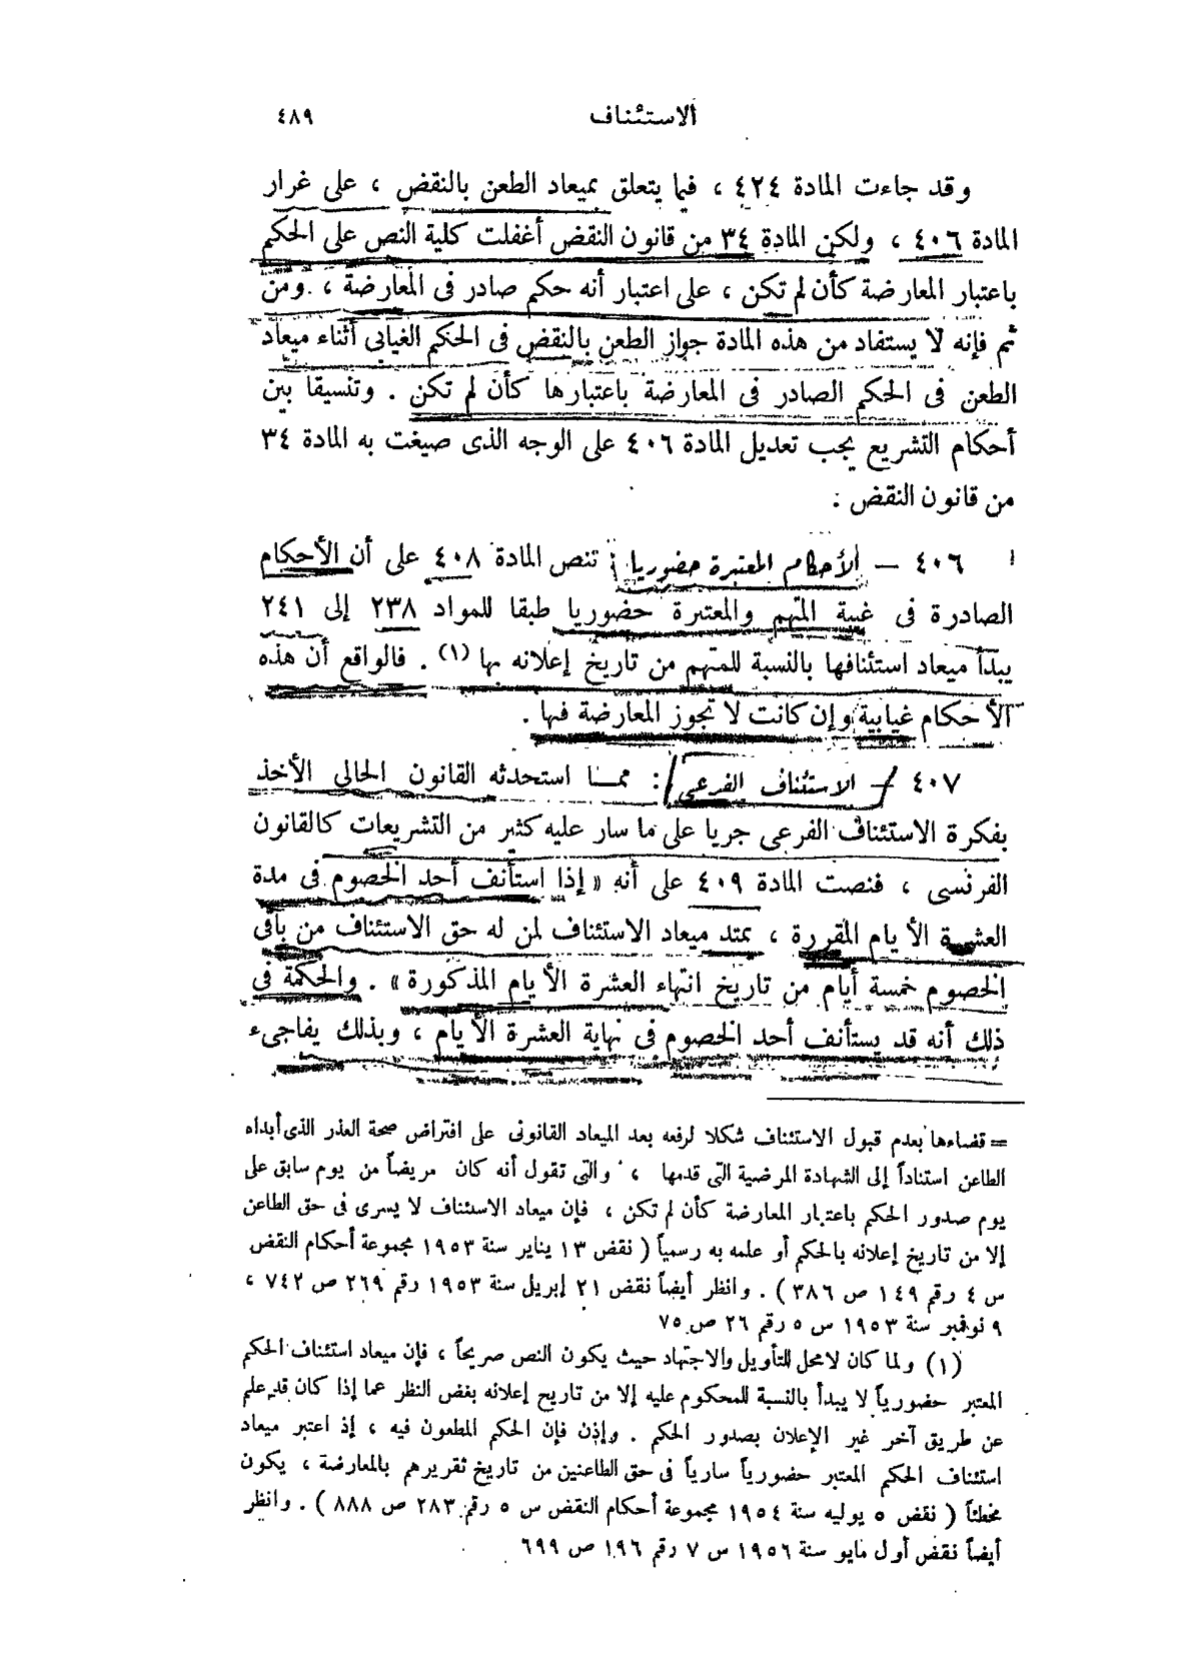 الاستئناف ٤٨٩
وقد جاءت المادة ٤٢٤ ، فيما يتعلق بميعاد الطعن بالنقض ، على غرار
المادة ٤٠٦ ، ولكن المادة ٣٤ من قانون النقض أغفلت كلية النص على الحكم
باعتبار المعارضة كأن لم تكن ، على اعتبار أنه حكم صادر فى المعارضة ، ومن
ثم فإنه لا يستفاد من هذه المادة جواز الطعن بالنقض فى الحكم الغيابى أثناء ميعاد
الطعن فى الحكم الصادر فى المعارضة باعتبارها كأن لم تكن . وتنسيقا بين
أحكام التشريع يجب تعديل المادة ٤٠٦ على الوجه الذى صيغت به المادة ٣٤
من قانون النقض .
٤٠٦ — الأحكام المعتبرة حضوريا : تنص المادة ٤٠٨ على أن الأحكام
الصادرة فى غيبة المتهم والمعتبرة حضوريا طبقا للمواد ٢٣٨ إلى ٢٤١
يبدأ ميعاد استئنافها بالنسبة للمتهم من تاريخ إعلانه بها (١) . فالواقع أن هذه
الأحكام غيابية وإن كانت لا تجوز المعارضة فيها .
٤٠٧ — الاستئناف الفرعى : مما استحدثه القانون الحالى الأخذ
بفكرة الاستئناف الفرعى جريا على ما سار عليه كثير من التشريعات كالقانون
الفرنسى ، فنصت المادة ٤٠٩ على أنه « إذا استأنف أحد الخصوم فى مدة
العشرة الأيام المقررة ، يمتد ميعاد الاستئناف لمن له حق الاستئناف من باقى
الخصوم خمسة أيام من تاريخ انتهاء العشرة الأيام المذكورة » . والحكمة فى
ذلك أنه قد يستأنف أحد الخصوم فى نهاية العشرة الأيام ، وبذلك يفاجىء
= قضاءها بعدم قبول الاستئناف شكلا لرفعه بعد الميعاد القانونى على افتراض صحة العذر الذى أبداه
الطاعن استناداً إلى الشهادة المرضية التى قدمها ، والتى تقول أنه كان مريضاً من يوم سابق على
يوم صدور الحكم باعتبار المعارضة كأن لم تكن ، فإن ميعاد الاستئناف لا يسرى فى حق الطاعن
إلا من تاريخ إعلانه بالحكم أو علمه به رسمياً ( نقض ١٣ يناير سنة ١٩٥٣ مجموعة أحكام النقض
س ٤ رقم ١٤٩ ص ٣٨٦ ) . وانظر أيضاً نقض ٢١ إبريل سنة ١٩٥٣ رقم ٢٦٩ ص ٧٤٢ ،
٩ نوفمبر سنة ١٩٥٣ س ٥ رقم ٢٦ ص ٧٥
(١) ولما كان لامحل للتأويل والاجتهاد حيث يكون النص صريحاً ، فإن ميعاد استئناف الحكم
المعتبر حضورياً لا يبدأ بالنسبة للمحكوم عليه إلا من تاريخ إعلانه بغض النظر عما إذا كان قد علم
عن طريق آخر غير الإعلان بصدور الحكم . وإذن فإن الحكم المطعون فيه ، إذ اعتبر ميعاد
استئناف الحكم المعتبر حضورياً سارياً فى حق الطاعنين من تاريخ تقريرهم بالمعارضة ، يكون
مخطئاً ( نقض ٥ يوليه سنة ١٩٥٤ مجموعة أحكام النقض س ٥ رقم ٢٨٣ ص ٨٨٨ ) . وانظر
أيضاً نقض أول مايو سنة ١٩٥٦ س ٧ رقم ١٩٦ ص ٦٩٩